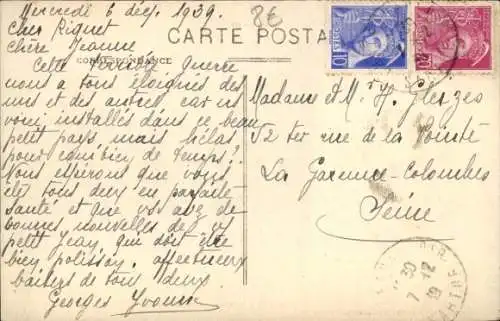 Mercredi 6 déc. 1939.
8€
Cher Riquet
CARTE POSTA
Chère Jeanne
CORRESPONDANCE
Cette terrible guerre
nous a tous éloignés des
uns et des autres, car ns
voici installés dans ce beau
petit pays mais hélas
pour combien de temps?
Nous espérons que vous
êtes tous deux en parfaite
santé et que vs avez de
bonnes nouvelles de vs
petit Jean qui doit être
bien polisson. affectueux
baisers de tous deux.
Georges Yvonne
Madame et M. H.
52 ter rue de la Pointe
La Garenne-Colombes
Seine
10
70
30
7 12
39